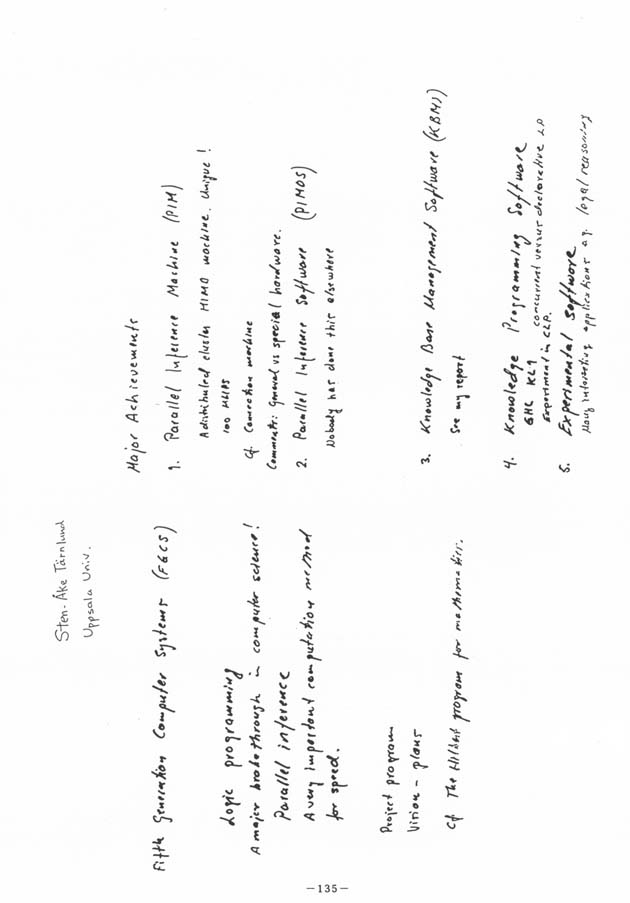 Sten-Åke Tärnlund
Uppsala Univ.
Fifth Generation Computer Systems (FGCS)
Logic programming
A major brakethrough in computer science!
Parallel inference
A very important computation method
for speed.
Project program
Vision - plans
Cf The Hilbert program for mathematics.
Major Achievements
1. Parallel Inference Machine (PIM)
A distributed cluster MIMD machine. Unique!
100 MLIPS
Cf. Connection machine
Comments: General vs special hardware.
2. Parallel Inference Software (PIMOS)
Nobody has done this elsewhere
3. Knowledge Base Management Software (KBMS)
See my report
4. Knowledge Programming Software
GHC KL1 concurrent versus declarative LP
Experiment in CLP.
5. Experimental Software
Many interesting applications e.g. legal reasoning
-135-